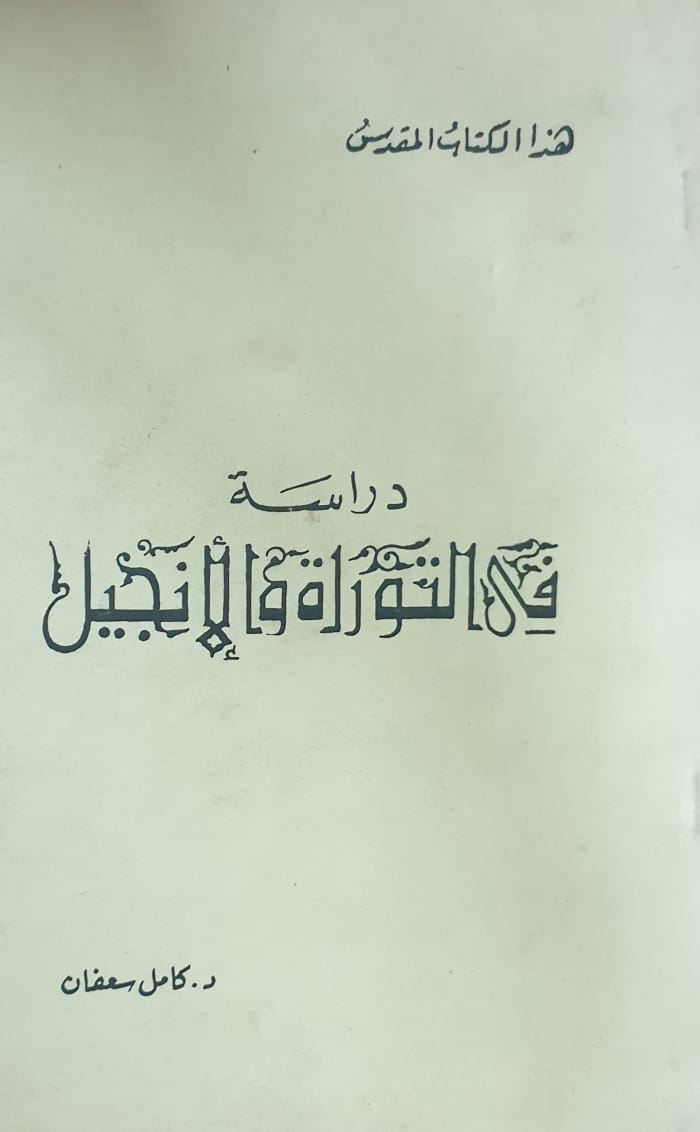 هذا الكتاب المقدس
دراسة
في التوراة والإنجيل
د. كامل سعفان